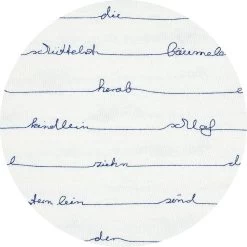 die
schüttelt bäumela
herab e
kindlein schlaf
l ziehn d
ternlein sind
den